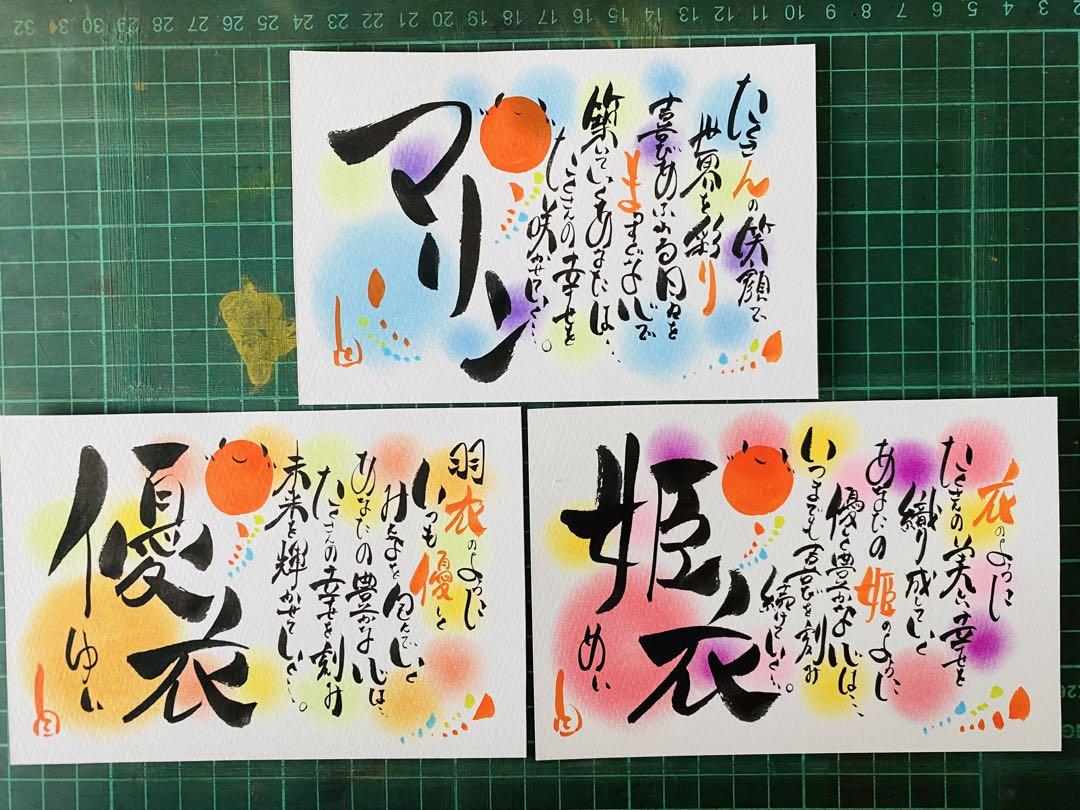 32 31 30 29 28 27 26 25 24 23 22 21 20 19 18 17 16 15 14 13 12 11 10 9 8 7 6 5 4 3 2
たくさんの笑顔で
世界を彩り
喜びあふれる日々を
まっすぐな心で
築いていくあなたは、、
たくさんの幸せを
咲かせていく…。
マリン
羽衣のように
いつも優しく
みんなを包んでいく
あなたの豊かな心は、、
たくさんの幸せを刻み
未来を輝かせていく…。
優衣
ゆい
衣のように
たくさんの笑い幸せを
織り成していく
あなたの姫のように
優しく豊かな心は、、
いつまでも喜びを刻み
続けていく…。
姫衣
めい